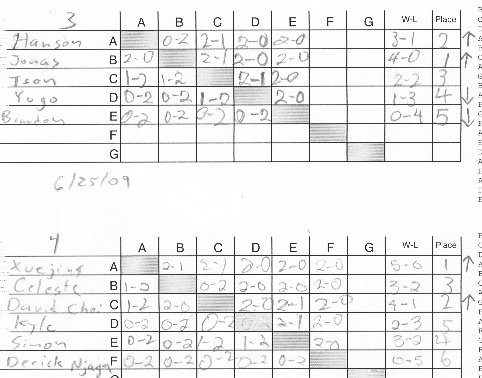 3 A B C D E F G W-L Place
Hanson A 0-2 2-1 2-0 2-0 3-1 2 ↑
Jonas B 2-0 2-1 2-0 2-0 4-0 1 ↑
Tson C 1-2 1-2 2-1 2-0 2-2 3
Yugo D 0-2 0-2 1-2 2-0 1-3 4 ↓
Brandon E 0-2 0-2 0-2 0-2 0-4 5 ↓
F
G
6/25/09
4 A B C D E F G W-L Place
Xuejing A 2-1 2-1 2-0 2-0 2-0 5-0 1 ↑
Celeste B 1-2 0-2 2-0 2-0 2-0 3-2 3
David Choi C 1-2 2-0 2-0 2-1 2-0 4-1 2 ↑
Kyle D 0-2 0-2 0-2 2-1 2-0 2-3 5
Simon E 0-2 0-2 1-2 1-2 2-0 4
Derick F 0-2 0-2 0-2 0-2 0-2 0-5 6